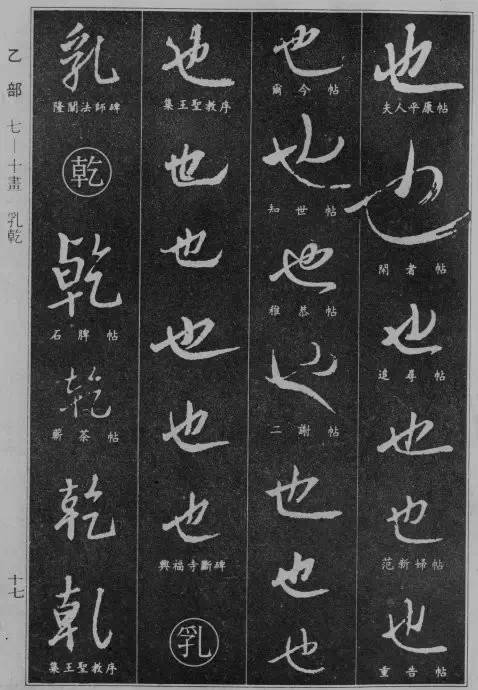 也
夫人平康帖
也
閑者帖
也
追尋帖
也
也
范新婦帖
也
重告帖
也
爾今帖
也
知世帖
也
雅恭帖
也
二謝帖
也
也
也
也
集王聖教序
也
也
也
也
也
興福寺斷碑
乳
乳
隆闡法師碑
乾
乾
石脾帖
乾
蘄茶帖
乾
乾
集王聖教序
乙部 七—十畫 乳乾
十七